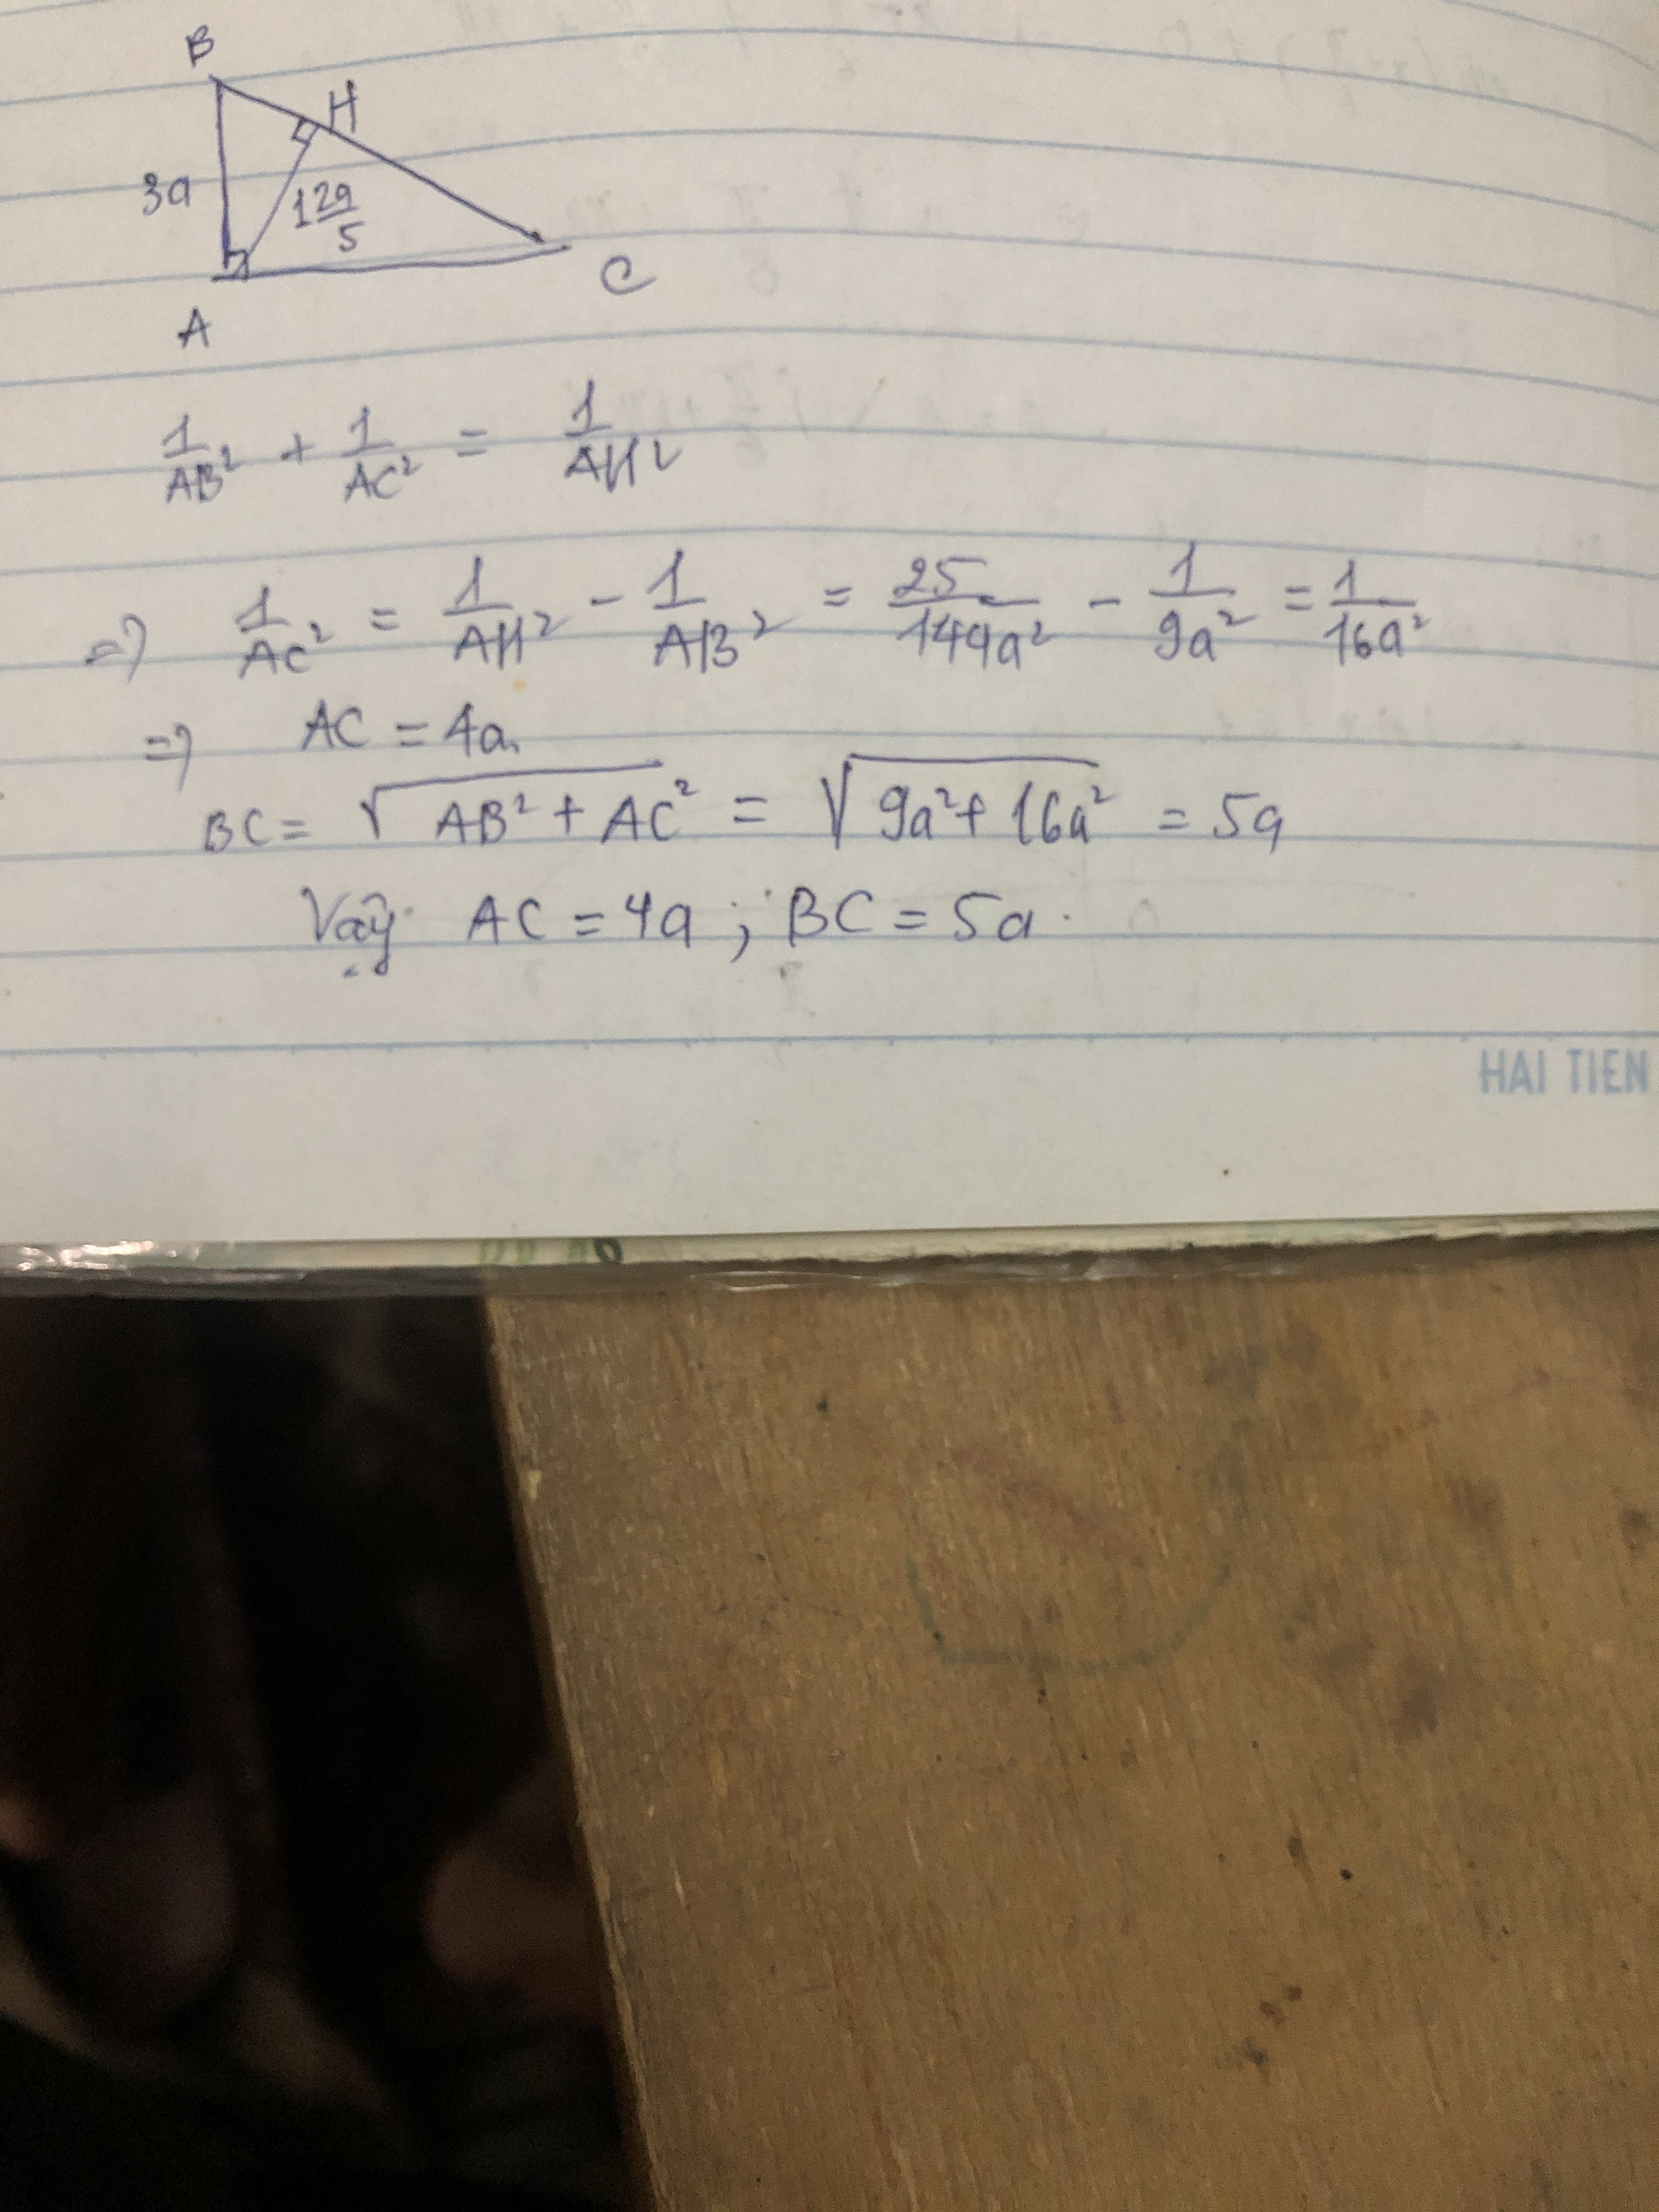 B
H
3a
12a/5
A
C
1/AB² + 1/AC² = 1/AH²
=> 1/AC² = 1/AH² - 1/AB² = 25/144a² - 1/9a² = 1/16a²
=> AC = 4a.
BC = √(AB² + AC²) = √(9a² + 16a²) = 5a
Vậy AC = 4a ; BC = 5a.
HAI TIEN